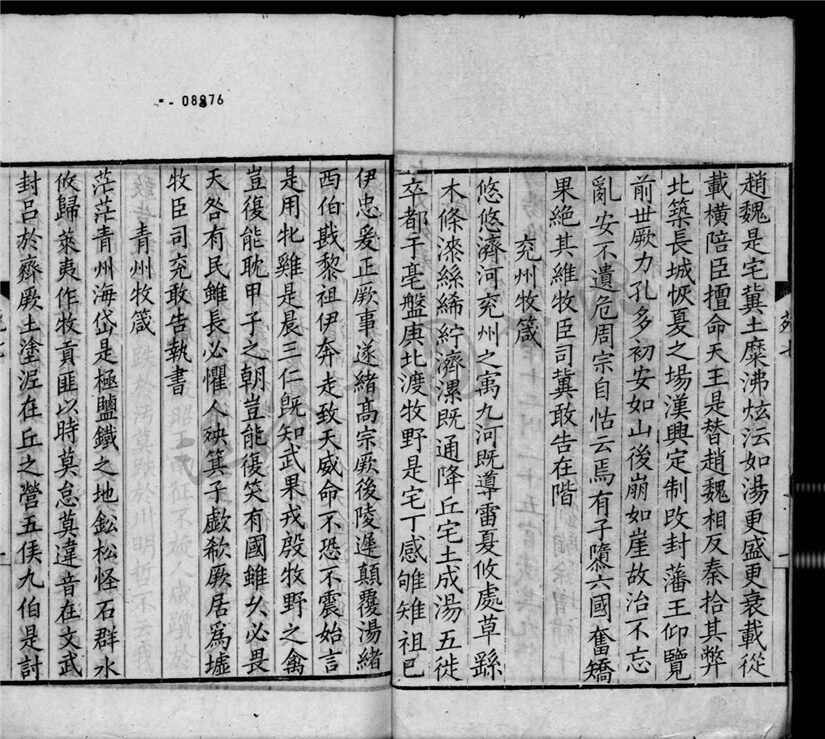 趙魏是宅冀土糜沸炫沄如湯更盛更衰載從
載橫陪臣擅命天王是替趙魏相反秦拾其弊
北築長城恢夏之場漢興定制改封藩王仰覽
前世厥力孔多初安如山後崩如崖故治不忘
亂安不遺危周宗自怙云焉有子隳六國奮矯
果絕其維牧臣司冀敢告在階
兖州牧箴
悠悠濟河兖州之寓九河既導雷夏攸處草繇
木條漆絲絺紵濟漯既通降丘宅土成湯五徙
卒都于亳盤庚北渡牧野是宅丁感雊雉祖已
伊忠爰正厥事遂緒高宗厥後陵遲顛覆湯緒
西伯戡黎祖伊奔走致天威命不恐不震始言
是用牝雞是晨三仁既知武果戎殷牧野之禽
豈復能耽甲子之朝豈能復笑有國雖久必畏
天咎有民雖長必懼人殃箕子歔欷厥居爲墟
牧臣司兖敢告執書
青州牧箴
茫茫青州海岱是極鹽鐵之地鈆松怪石群水
攸歸萊夷作牧貢匪以時莫怠莫違音在文武
封吕於齊厥土塗泥在丘之營五侯九伯是討
08976